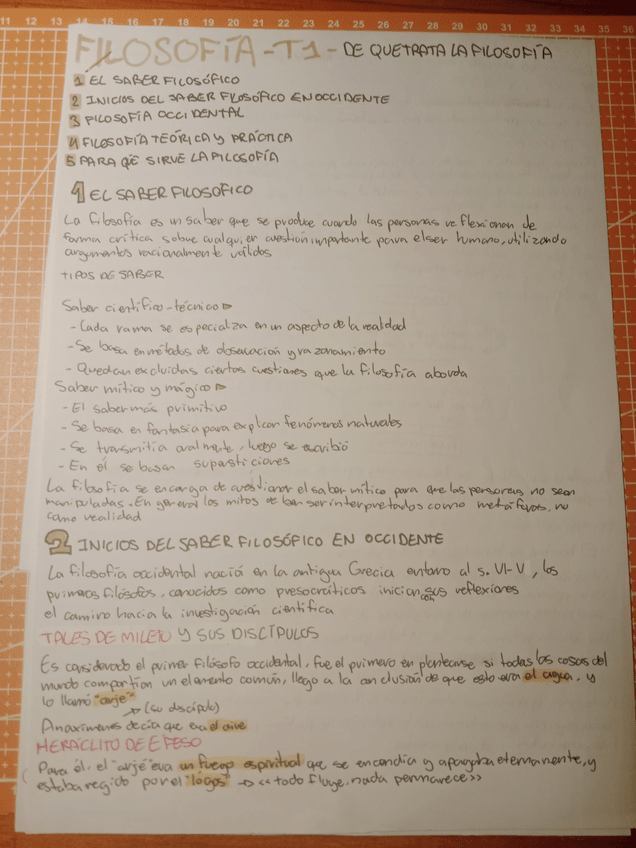 11 12 13 14 15 16 17 18 19 20 21 22 23 24 25 26 27 28 29 30 31 32 33 34 35 36
FILOSOFÍA - T1 - DE QUE TRATA LA FILOSOFÍA
1 EL SABER FILOSÓFICO
2 INICIOS DEL SABER FILOSÓFICO EN OCCIDENTE
3 FILOSOFÍA OCCIDENTAL
4 FILOSOFÍA TEÓRICA Y PRÁCTICA
5 PARA QÉ SIRVE LA FILOSOFÍA
1 EL SABER FILOSOFICO
La filosofía es un saber que se produce cuando las personas reflexionan de
forma crítica sobre cualquier cuestión importante para el ser humano, utilizando
argumentos racionalmente válidos
TIPOS DE SABER
Saber científico-técnico
- Cada rama se especializa en un aspecto de la realidad
- Se basa en métodos de observación y razonamiento
- Quedan excluidas ciertas cuestiones que la filosofía aborda
Saber mítico y mágico
- El saber más primitivo
- Se basa en fantasía para explicar fenómenos naturales
- Se transmitía oralmente, luego se escribió
- En él se basan supersticiones
La filosofía se encarga de cuestionar el saber mítico para que las personas no sean
manipuladas. En general los mitos deben ser interpretados como metáforas, no
como realidad
2 INICIOS DEL SABER FILOSÓFICO EN OCCIDENTE
La filosofía occidental nació en la antigua Grecia entorno al s. VI-V, los
primeros filósofos, conocidos como presocráticos inician con sus reflexiones
el camino hacia la investigación científica
TALES DE MILETO Y SUS DISCÍPULOS
Es considerado el primer filósofo occidental, fue el primero en plantearse si todas las cosas del
mundo compartían un elemento común, llego a la conclusión de que esto era el agua, y
lo llamó "arjé"
(su discípulo)
Anaxímenes decía que era el aire
HERÁCLITO DE EFESO
Para él, el "arjé" era un fuego espiritual que se encendía y apagaba eternamente, y
estaba regido por el "lógos" → «todo fluye, nada permanece»